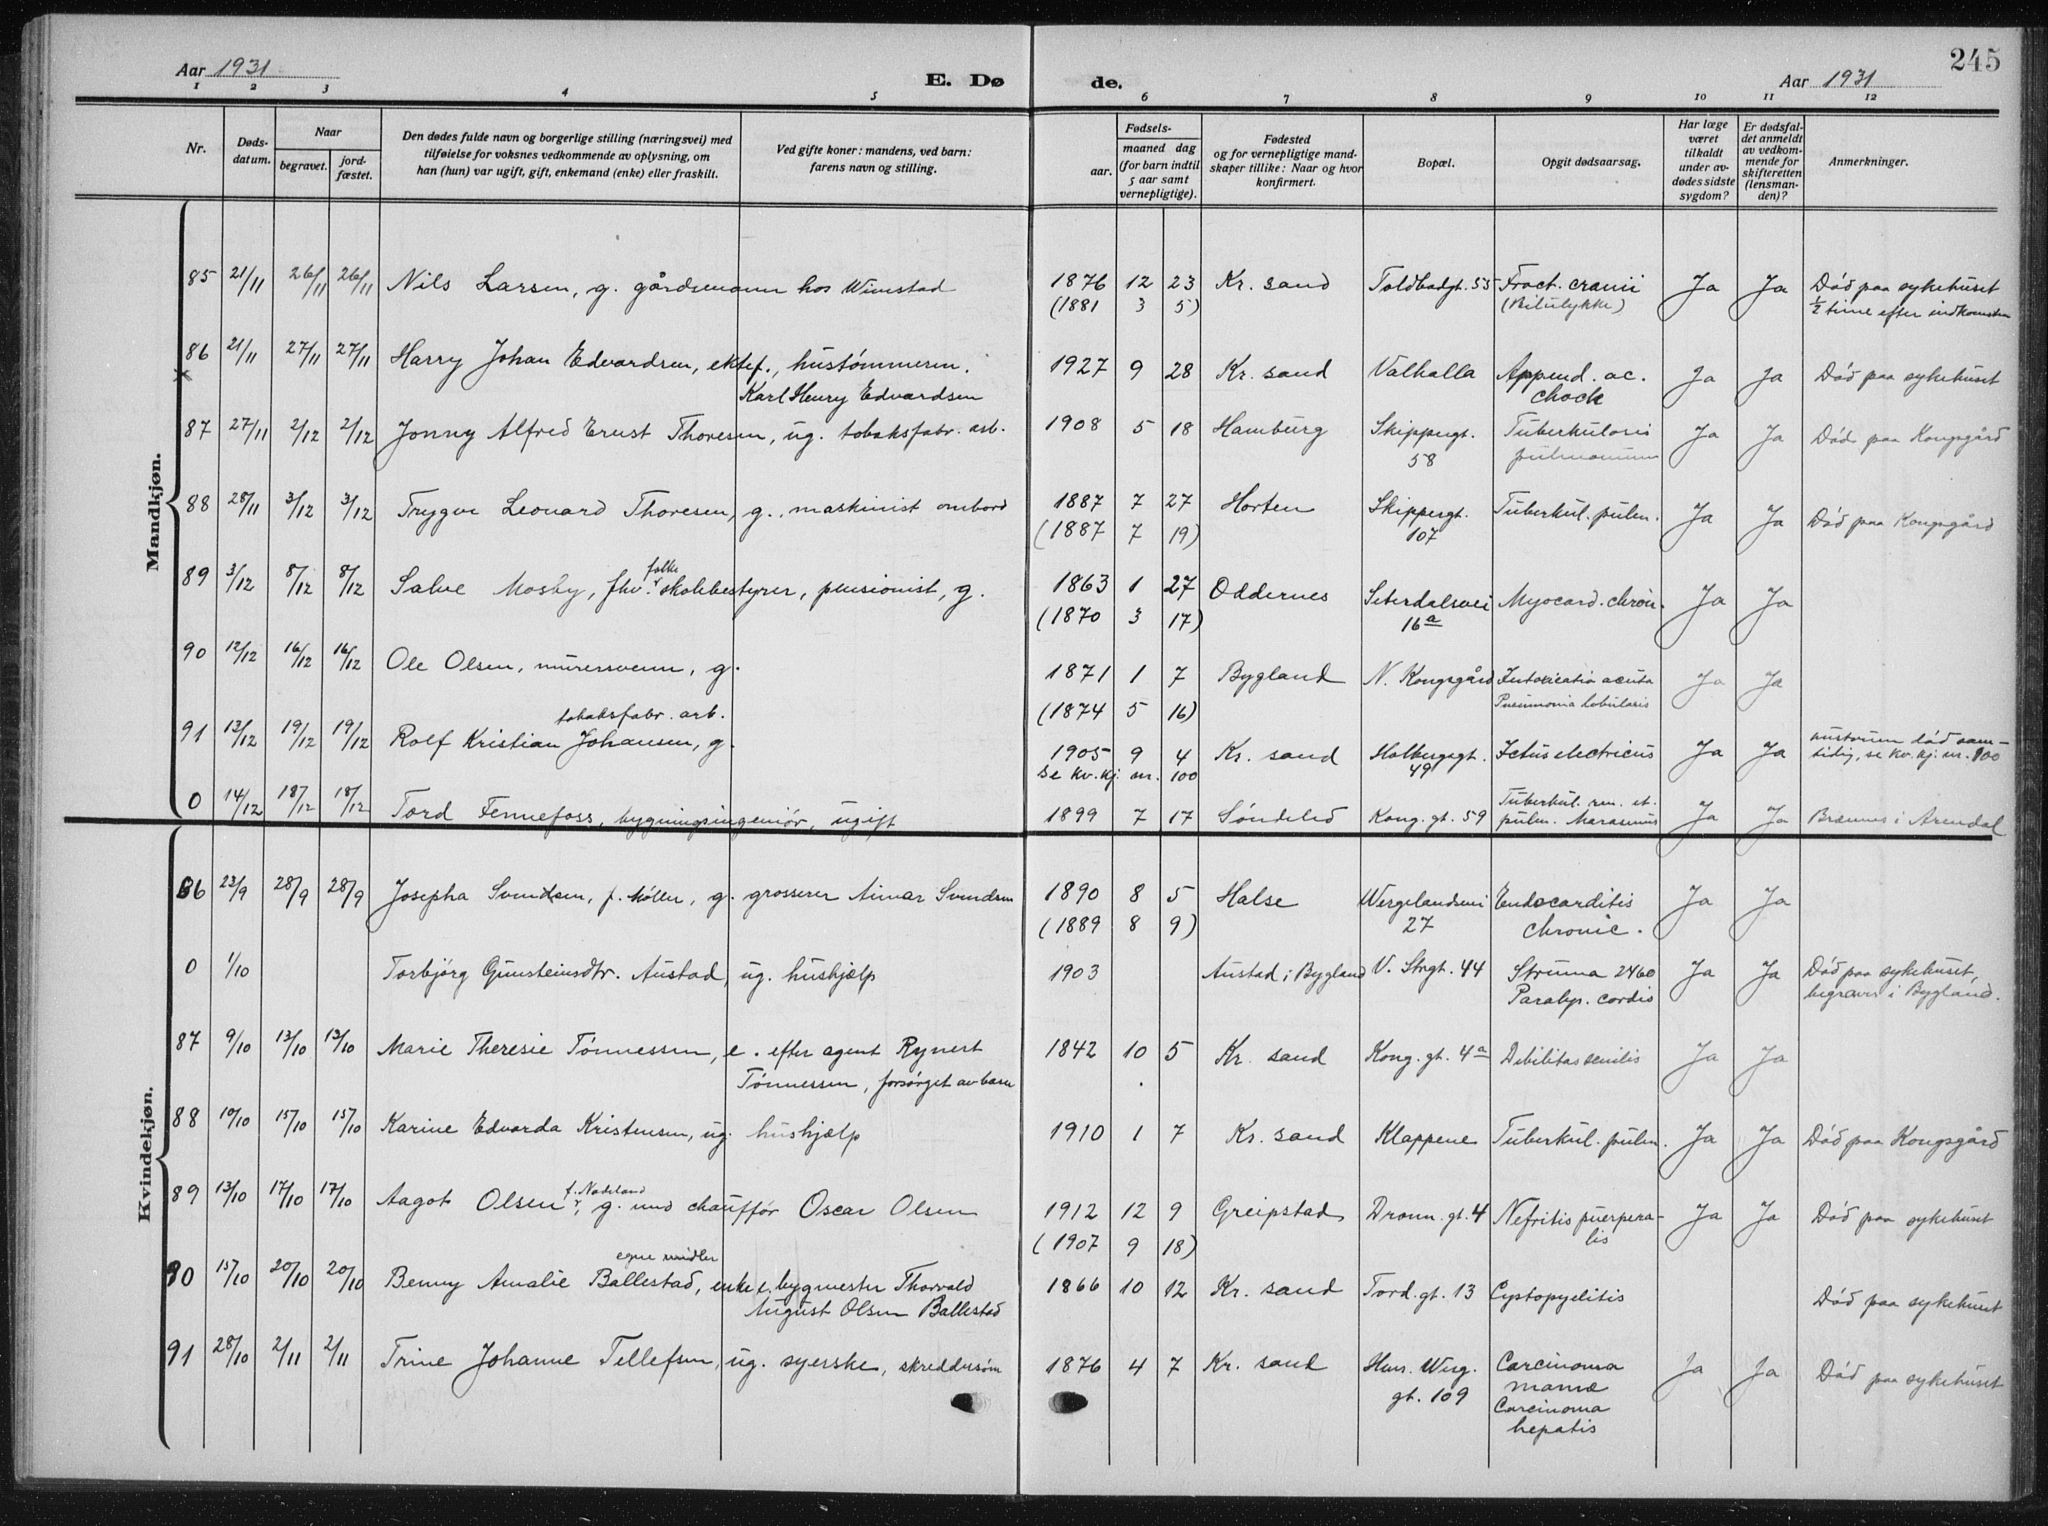 245
Aar 1931
E. Dø de.
Aar 1931
1 2 3 4 5 6 7 8 9 10 11 12
Nr.
Døds-
datum.
Naar
begravet.
jord-
fæstet.
Den dødes fulde navn og borgerlige stilling (næringsvei) med
tilføielse for voksnes vedkommende av oplysning, om
han (hun) var ugift, gift, enkemand (enke) eller fraskilt.
Ved gifte koner: mandens, ved barn:
farens navn og stilling.
Fødsels-
aar.
maaned dag
(for barn indtil
5 aar samt
vernepligtige).
Fødested
og for vernepligtige mand-
skaper tillike: Naar og hvor
konfirmert.
Bopæl.
Opgit dødsaarsag.
Har læge
været
tilkaldt
under av-
dødes sidste
sygdom?
Er dødsfal-
det anmeldt
av vedkom-
mende for
skifteretten
(lensman-
den)?
Anmerkninger.
Mandkjøn.
85 21/11 26/11 26/11 Nils Larsen, g. gårdsmann hos Wimstad 1876 12 23 Kr. sand Toldbodgt. 55 Fract. cranii Ja Ja Död paa sykehuset
(1881 3 5) (Bilulykke) 1/2 time efter indkomsten
86 21/11 27/11 27/11 Harry Johan Edvardsen, ektef., hustømmerm. 1927 9 28 Kr. sand Valhalla Append. ac. Ja Ja Död paa sykehuset
x Karl Henry Edvardsen chock
87 27/11 2/12 2/12 Jonny Alfred Ernst Thoresen, ug. tobaksfabr. arb. 1908 5 18 Hamburg Skippergt. Tuberkulosis Ja Ja Död paa Kongsgård
58 pulmonum
88 28/11 3/12 3/12 Trygve Leonard Thoresen, g. maskinist ombord 1887 7 27 Horten Skippergt. Tuberkul. pulm. Ja Ja Död paa Kongsgård
(1887 7 19) 107
folke
89 3/12 8/12 8/12 Salve Mosby, fhv. skolebestyrer, pensionist, g. 1863 1 27 Oddernes Seterdalsvei Myocard. chron. Ja Ja
(1870 3 17) 16a
90 12/12 16/12 16/12 Ole Olsen, murersvenn, g. 1871 1 7 Bygland N. Kongsgård Intoxicatio acuta Ja Ja
(1874 5 16) Pneumonia lobularis
tobaksfabr. arb.
91 13/12 19/12 19/12 Rolf Kristian Johansen, g. 1905 9 4 Kr. sand Holbergsgt. Ictus electricus Ja Ja hustruen død sam-
se kv. kj. nr. 100 49 tidig, se kv. kj. nr. 100
0 14/12 18/12 18/12 Tord Fennefoss, bygningsingeniör, ugift 1899 7 17 Söndeled Kong. gt. 59 Tuberkul. ren. et. Ja Ja Brænnes i Arendal
pulm. Marasmus
Kvindekjøn.
86 23/9 28/9 28/9 Josepha Svendsen, f. Møller, g. grosserer Aimar Svendsen 1890 8 5 Halse Wergelandsvei Endocarditis Ja Ja
(1889 8 9) 27 chronic.
0 1/10 Torbjörg Gunsteinsdtr. Austad, ug. hushjælp 1903 Austad i Bygland V. Strgt. 44 Struma 2460 Ja Ja Död paa sykehuset,
Paralys. cordis begraves i Bygland.
87 9/10 13/10 13/10 Marie Theresie Tönnessen, e. efter agent Rynert 1842 10 5 Kr. sand Kong. gt. 4a Debilitas senilis Ja Ja
Tönnessen, forsörget av barn
88 10/10 15/10 15/10 Karine Edvarda Kristensen, ug. hushjælp 1910 1 7 Kr. sand Klappene Tuberkul. pulm. Ja Ja Död paa Kongsgård
f. Nodeland
89 13/10 17/10 17/10 Aagot Olsen, g. med chauffør Oscar Olsen 1912 12 9 Greipstad Dronn. gt. 4 Nefritis puerpera- Ja Ja Död paa sykehuset
(1907 9 18) lis
egne midler
90 15/10 20/10 20/10 Benny Amalie Ballestad, enke e. bygmester Thorvald 1866 10 12 Kr. sand Tord. gt. 13 Cystopyelitis Död paa sykehuset
August Olsen Ballestad
91 28/10 2/11 2/11 Trine Johanne Tellefsen, ug. syerske, skreddersöm 1876 4 7 Kr. sand Hens. Werg. Carcinoma Ja Ja Död paa sykehuset
gt. 109 mamæ
Carcinoma
hepatis